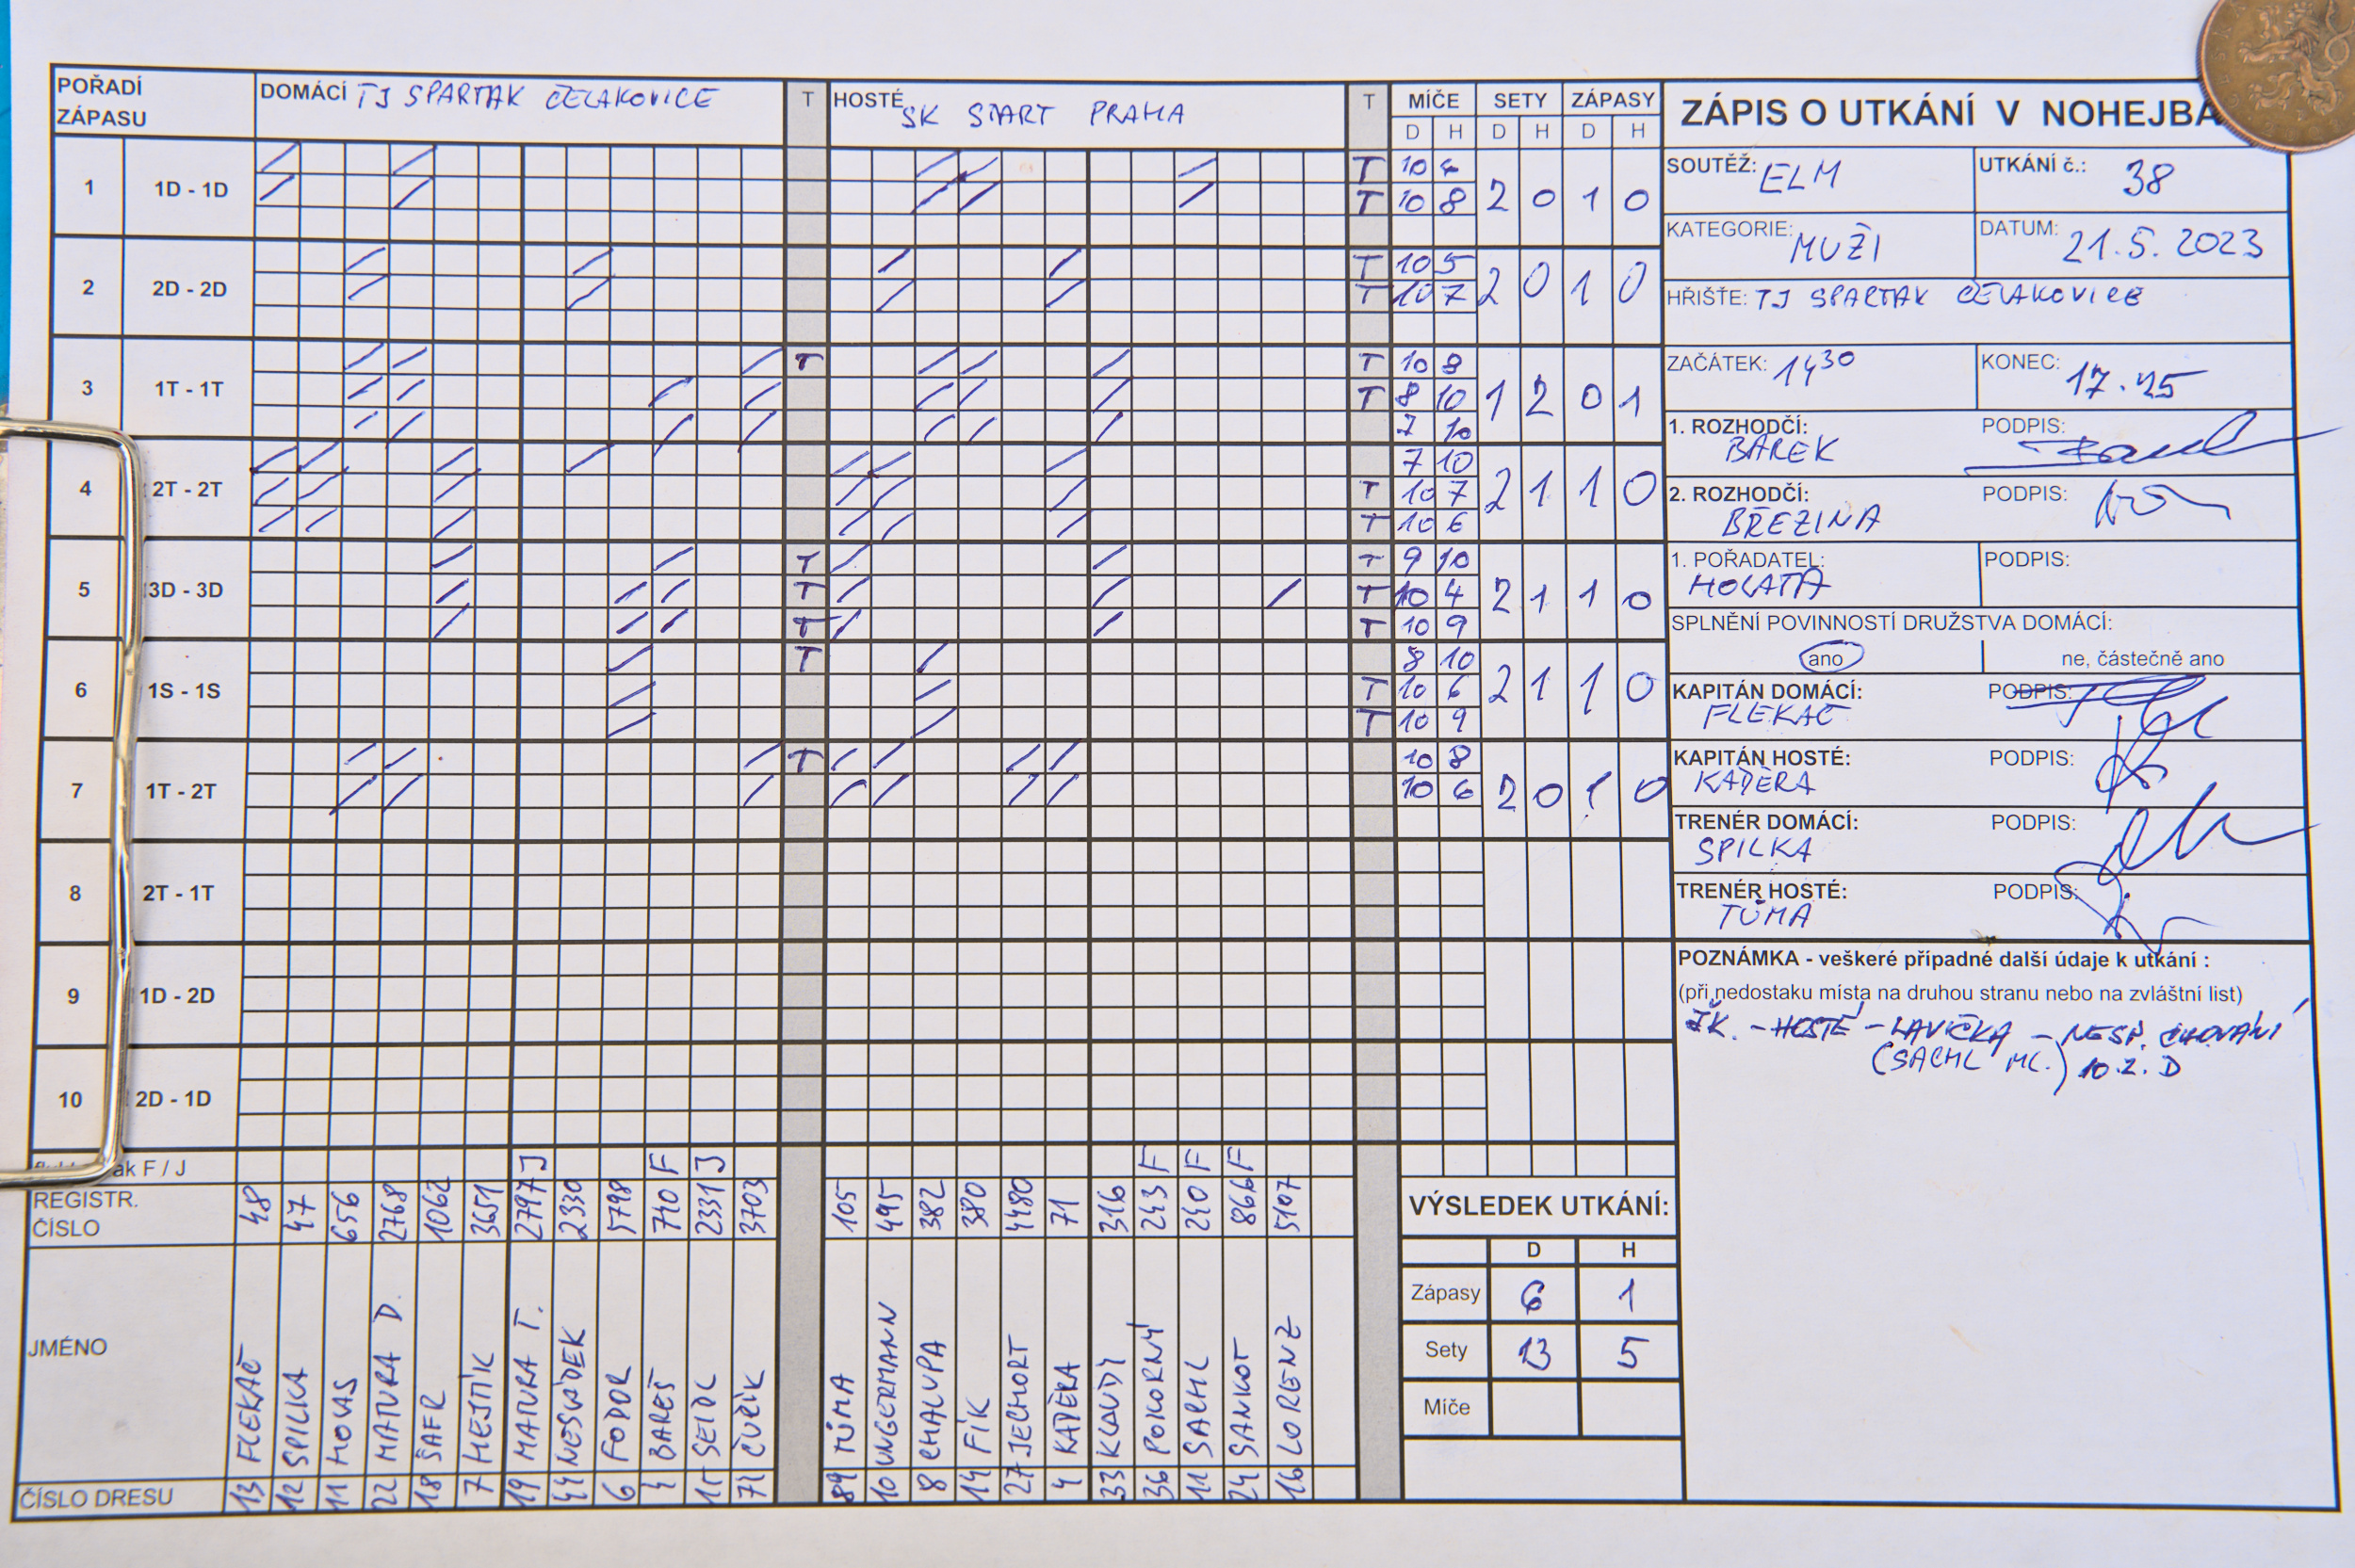 POŘADÍ ZÁPASU DOMÁCÍ TJ SPARTAK ČELAKOVICE T HOSTÉ SK START PRAHA T MÍČE SETY ZÁPASY
D H D H D H
1 1D - 1D T 10 4 2 0 1 0
T 10 8
2 2D - 2D T 10 5 2 0 1 0
T 10 7
3 1T - 1T T T 10 8 1 2 0 1
T 8 10
7 10
4 2T - 2T 7 10 2 1 1 0
T 10 7
T 10 6
5 3D - 3D T T 9 10 2 1 1 0
T T 10 4
T T 10 9
6 1S - 1S T 8 10 2 1 1 0
T 10 6
T 10 9
7 1T - 2T T 10 8 2 0 1 0
10 6
8 2T - 1T
9 1D - 2D
10 2D - 1D
F / J J F J F F F
REGISTR. ČÍSLO 48 47 656 2768 1062 3651 2797 2330 5798 740 2331 3703 105 495 382 380 4480 71 316 243 240 866 5107
JMÉNO FLEKAČ SPILKA HOVAS MATURA D. ŠAFR HEJTÍK MATURA T. NESLÁDEK FODOR BAREŠ SEIDL ČUŘÍK TŮMA UNGERMANN CHALUPA FÍK JECHORT KADĚRA KLAUDY POKORNÝ SACHL SANKOT LORENZ
ČÍSLO DRESU 13 12 11 22 18 7 19 44 6 4 15 71 89 10 8 14 27 4 33 36 11 24 16
VÝSLEDEK UTKÁNÍ:
D H
Zápasy 6 1
Sety 13 5
Míče
ZÁPIS O UTKÁNÍ V NOHEJBA
SOUTĚŽ: ELM UTKÁNÍ č.: 38
KATEGORIE: MUŽI DATUM: 21.5.2023
HŘIŠTE: TJ SPARTAK ČELAKOVICE
ZAČÁTEK: 14³⁰ KONEC: 17.25
1. ROZHODČÍ: BÁREK PODPIS:
2. ROZHODČÍ: BŘEZINA PODPIS:
1. POŘADATEL: HOLATA PODPIS:
SPLNĚNÍ POVINNOSTÍ DRUŽSTVA DOMÁCÍ:
ano ne, částečně ano
KAPITÁN DOMÁCÍ: FLEKAČ PODPIS:
KAPITÁN HOSTÉ: KADĚRA PODPIS:
TRENÉR DOMÁCÍ: SPILKA PODPIS:
TRENÉR HOSTÉ: TŮMA PODPIS:
POZNÁMKA - veškeré případné další údaje k utkání :
(při nedostaku místa na druhou stranu nebo na zvláštní list)
ŽK. - HOSTÉ - LAVIČKA - NESP. CHOVÁNÍ
(SACHL ML.) 10.Z. D